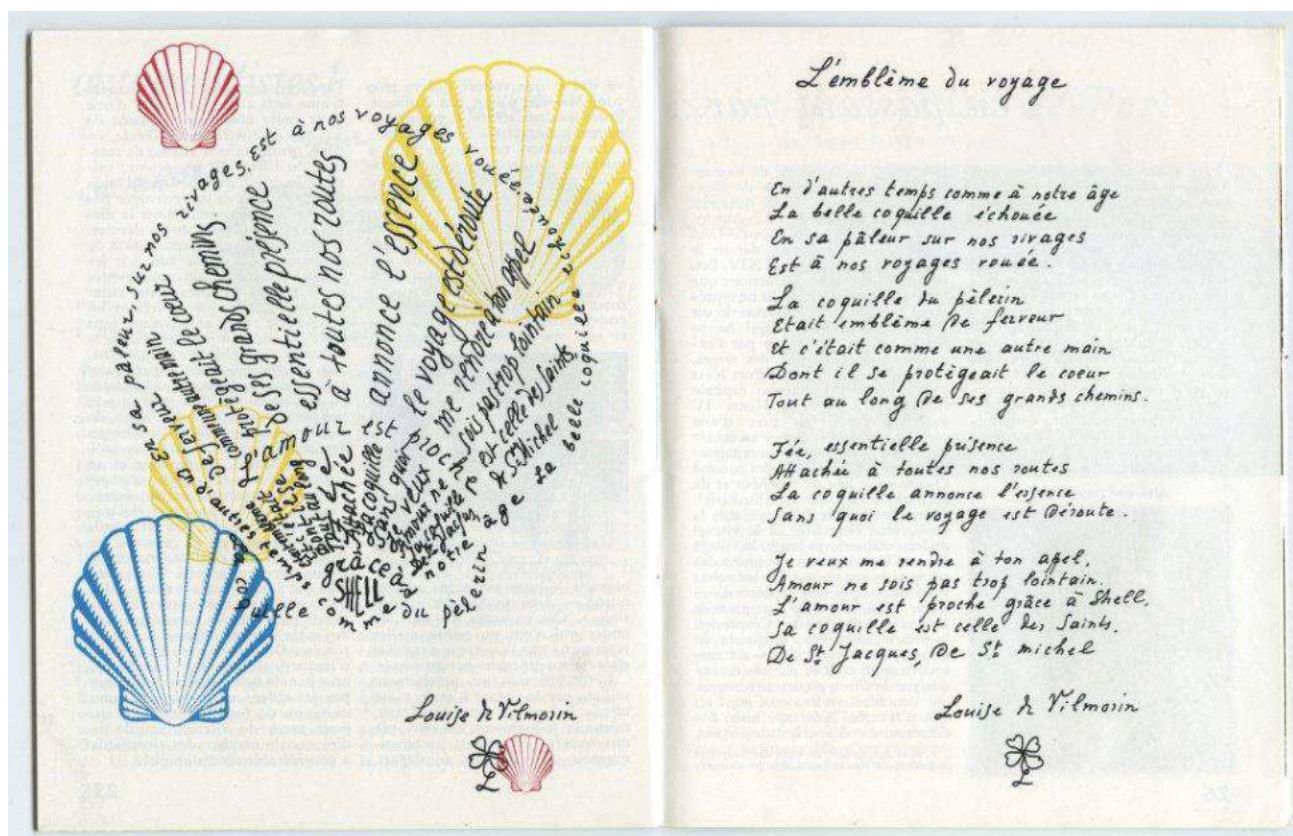 En sa pâleur, sur nos rivages, est à nos voyages vouée
De ferveur
comme une autre main
protégeait le cœur
de ses grands chemins
essentielle présence
à toutes nos routes
annonce l'essence
le voyage est déroute
me rendre à ton appel
ne sois pas trop lointain
est celle des Saints
de St Michel
la belle coquille échouée
L'amour est proche
grâce à
SHELL
notre âge
du pèlerin
Louise de Vilmorin
L
L'emblème du voyage
En d'autres temps comme à notre âge
La belle coquille échouée
En sa pâleur sur nos rivages
Est à nos voyages vouée.
La coquille du pèlerin
Etait emblème de ferveur
Et c'était comme une autre main
Dont il se protégeait le coeur
Tout au long de ses grands chemins.
Fée, essentielle présence
Attachée à toutes nos routes
La coquille annonce l'essence
Sans quoi le voyage est déroute.
Je veux me rendre à ton appel,
Amour ne sois pas trop lointain.
L'amour est proche grâce à Shell,
Sa coquille est celle des Saints.
De St Jacques, De St michel
Louise de Vilmorin
L